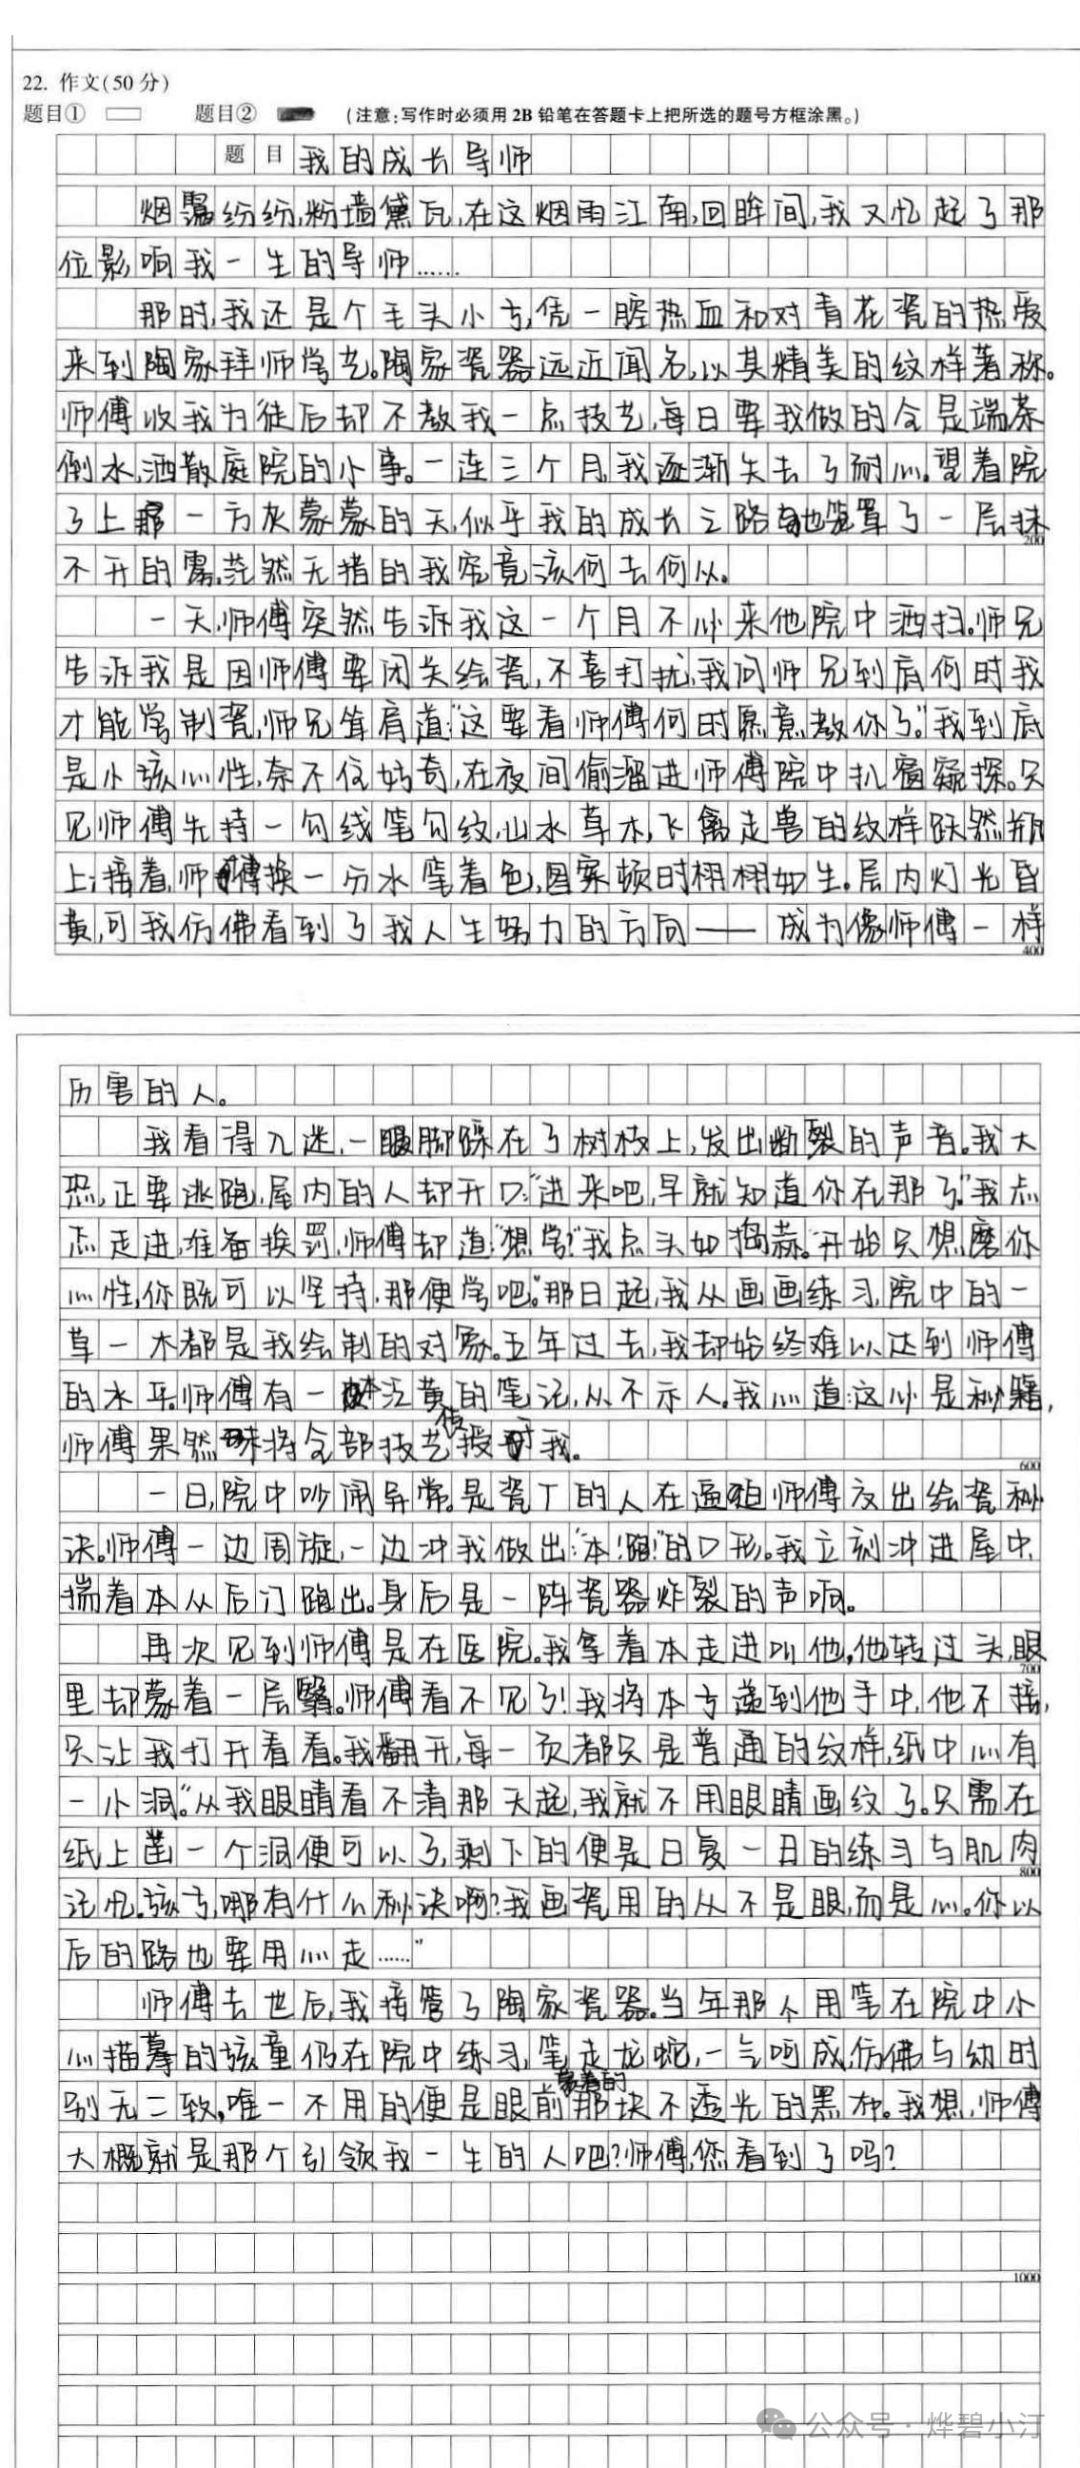 22. 作文(50分)
题目① 题目② (注意:写作时必须用2B铅笔在答题卡上把所选的题号方框涂黑。)
题目 我的成长导师
烟霭纷纷,粉墙黛瓦,在这烟雨江南,回眸间,我又忆起了那
位影响我一生的导师……
那时,我还是个毛头小子,凭一腔热血和对青花瓷的热爱
来到陶家拜师学艺。陶家瓷器远近闻名,以其精美的纹样著称。
师傅收我为徒后却不教我一点技艺,每日要我做的全是端茶
倒水,洒散庭院的小事。一连三个月,我逐渐失去了耐心。望着院
子上那一方灰蒙蒙的天,似乎我的成长之路也笼罩了一层抹
不开的雾,茫然无措的我究竟该何去何从。
一天,师傅突然告诉我这一个月不必来他院中洒扫。师兄
告诉我是因师傅要闭关绘瓷,不喜打扰,我问师兄到底何时我
才能学制瓷,师兄耸肩道:“这要看师傅何时愿意教你了。”我到底
是小孩心性,奈不住好奇,在夜间偷溜进师傅院中扒窗窥探。只
见师傅先持一勾线笔勾纹,山水草木,飞禽走兽的纹样跃然瓶
上;接着,师傅换一分水笔着色,图案顿时栩栩如生。屋内灯光昏
黄,可我仿佛看到了我人生努力的方向——成为像师傅一样
200
400
厉害的人。
我看得入迷,一脚踩在了树枝上,发出断裂的声音。我大
恐,正要逃跑,屋内的人却开口:“进来吧,早就知道你在那了。”我忐
忐走进,准备挨罚,师傅却道:“想学?”我点头如捣蒜。“开始只想磨你
心性,你既可以坚持,那便学吧。”那日起,我从画画练习,院中的一
草一木都是我绘制的对象。五年过去,我却始终难以达到师傅
的水平。师傅有一本泛黄的笔记,从不示人。我心道:这必是秘籍,
师傅果然未将全部技艺传授于我。
一日,院中吵闹异常。是瓷丁的人在逼迫师傅交出绘瓷秘
决。师傅一边周旋,一边冲我做出:“本!跑!”的口形。我立刻冲进屋中,
揣着本从后门跑出。身后是一阵瓷器炸裂的声响。
再次见到师傅是在医院。我拿着本走进叫他,他转过头,眼
里却蒙着一层翳。师傅看不见了!我将本子递到他手中,他不接,
只让我打开看看。我翻开,每一页都只是普通的纹样,纸中心有
一小洞。“从我眼睛看不清那天起,我就不用眼睛画纹了。只需在
纸上凿一个洞便可以了,剩下的便是日复一日的练习与肌肉
记忆。孩子,哪有什么秘决啊?我画瓷用的从不是眼,而是心。你以
后的路也要用心走……”
师傅去世后,我接管了陶家瓷器。当年那个用笔在院中小
心描摹的孩童仍在院中练习,笔走龙蛇,一气呵成,仿佛与幼时
别无二致。唯一不用的便是眼前蒙着的那块不透光的黑布。我想,师傅
大概就是那个引领我一生的人吧?师傅,您看到了吗?
600
700
800
1000
公众号·烨碧小汀